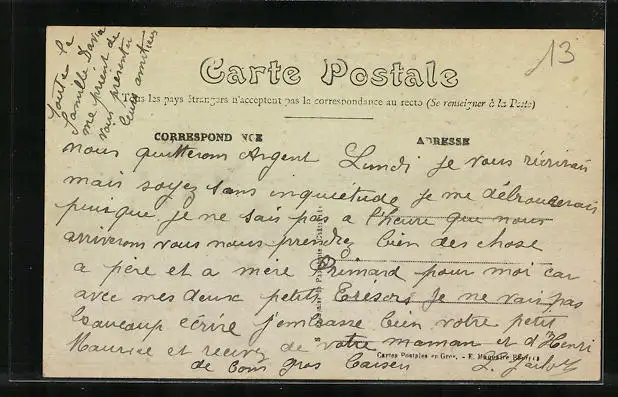 Toute la
famille Davia
me prient de
vous présenter
leurs amitiés
13
Carte Postale
Tous les pays étrangers n'acceptent pas la correspondance au recto (Se renseigner à la Poste)
CORRESPONDANCE
ADRESSE
nous quitterons Argent Lundi je vous récrirais
mais soyez sans inquiétude je me débrouillerais
puisque je ne sais pas a l'heure que nous
arriverons vous nous prendrez bien des chose
a père et a mère Primard pour moi car
avec mes deux petits trésors je ne vais pas
beaucoup écrire j'embrasse bien votre petit
Maurice et recevez de votre maman et d'Henri
de bons gros baisers
Cartes Postales en Gros. - E.